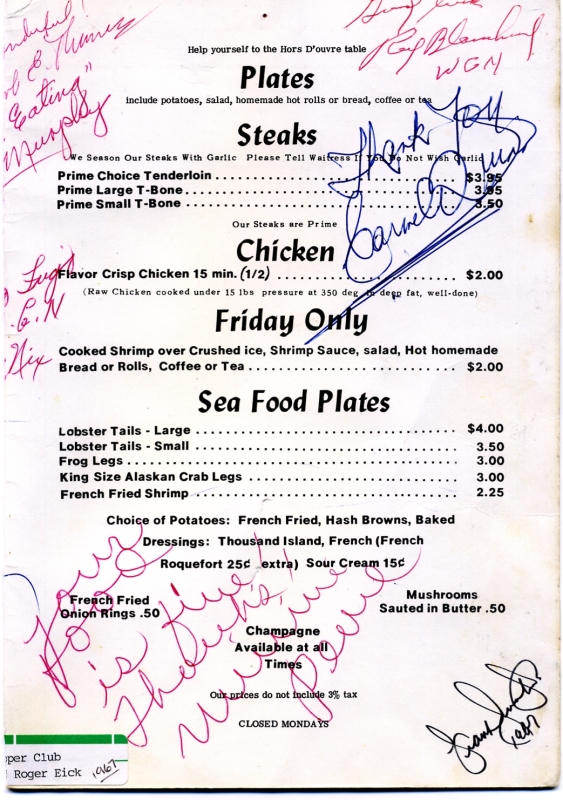 Help yourself to the Hors D'ouvre table
Plates
include potatoes, salad, homemade hot rolls or bread, coffee or tea
Steaks
We Season Our Steaks With Garlic Please Tell Waitress If You Do Not Wish Garlic
Prime Choice Tenderloin $3.95
Prime Large T-Bone 3.95
Prime Small T-Bone 3.50
Our Steaks are Prime
Chicken
Flavor Crisp Chicken 15 min. (1/2) $2.00
(Raw Chicken cooked under 15 lbs pressure at 350 deg. in deep fat, well-done)
Friday Only
Cooked Shrimp over Crushed ice, Shrimp Sauce, salad, Hot homemade
Bread or Rolls, Coffee or Tea $2.00
Sea Food Plates
Lobster Tails - Large $4.00
Lobster Tails - Small 3.50
Frog Legs 3.00
King Size Alaskan Crab Legs 3.00
French Fried Shrimp 2.25
Choice of Potatoes: French Fried, Hash Browns, Baked
Dressings: Thousand Island, French (French
Roquefort 25¢ extra) Sour Cream 15¢
French Fried
Onion Rings .50
Mushrooms
Sauted in Butter .50
Champagne
Available at all
Times
Our prices do not include 3% tax
CLOSED MONDAYS
Eating"
Murphy
WGN
Thank You
Your
food
is fine!
Thanks!
1967
pper Club
Roger Eick 1967